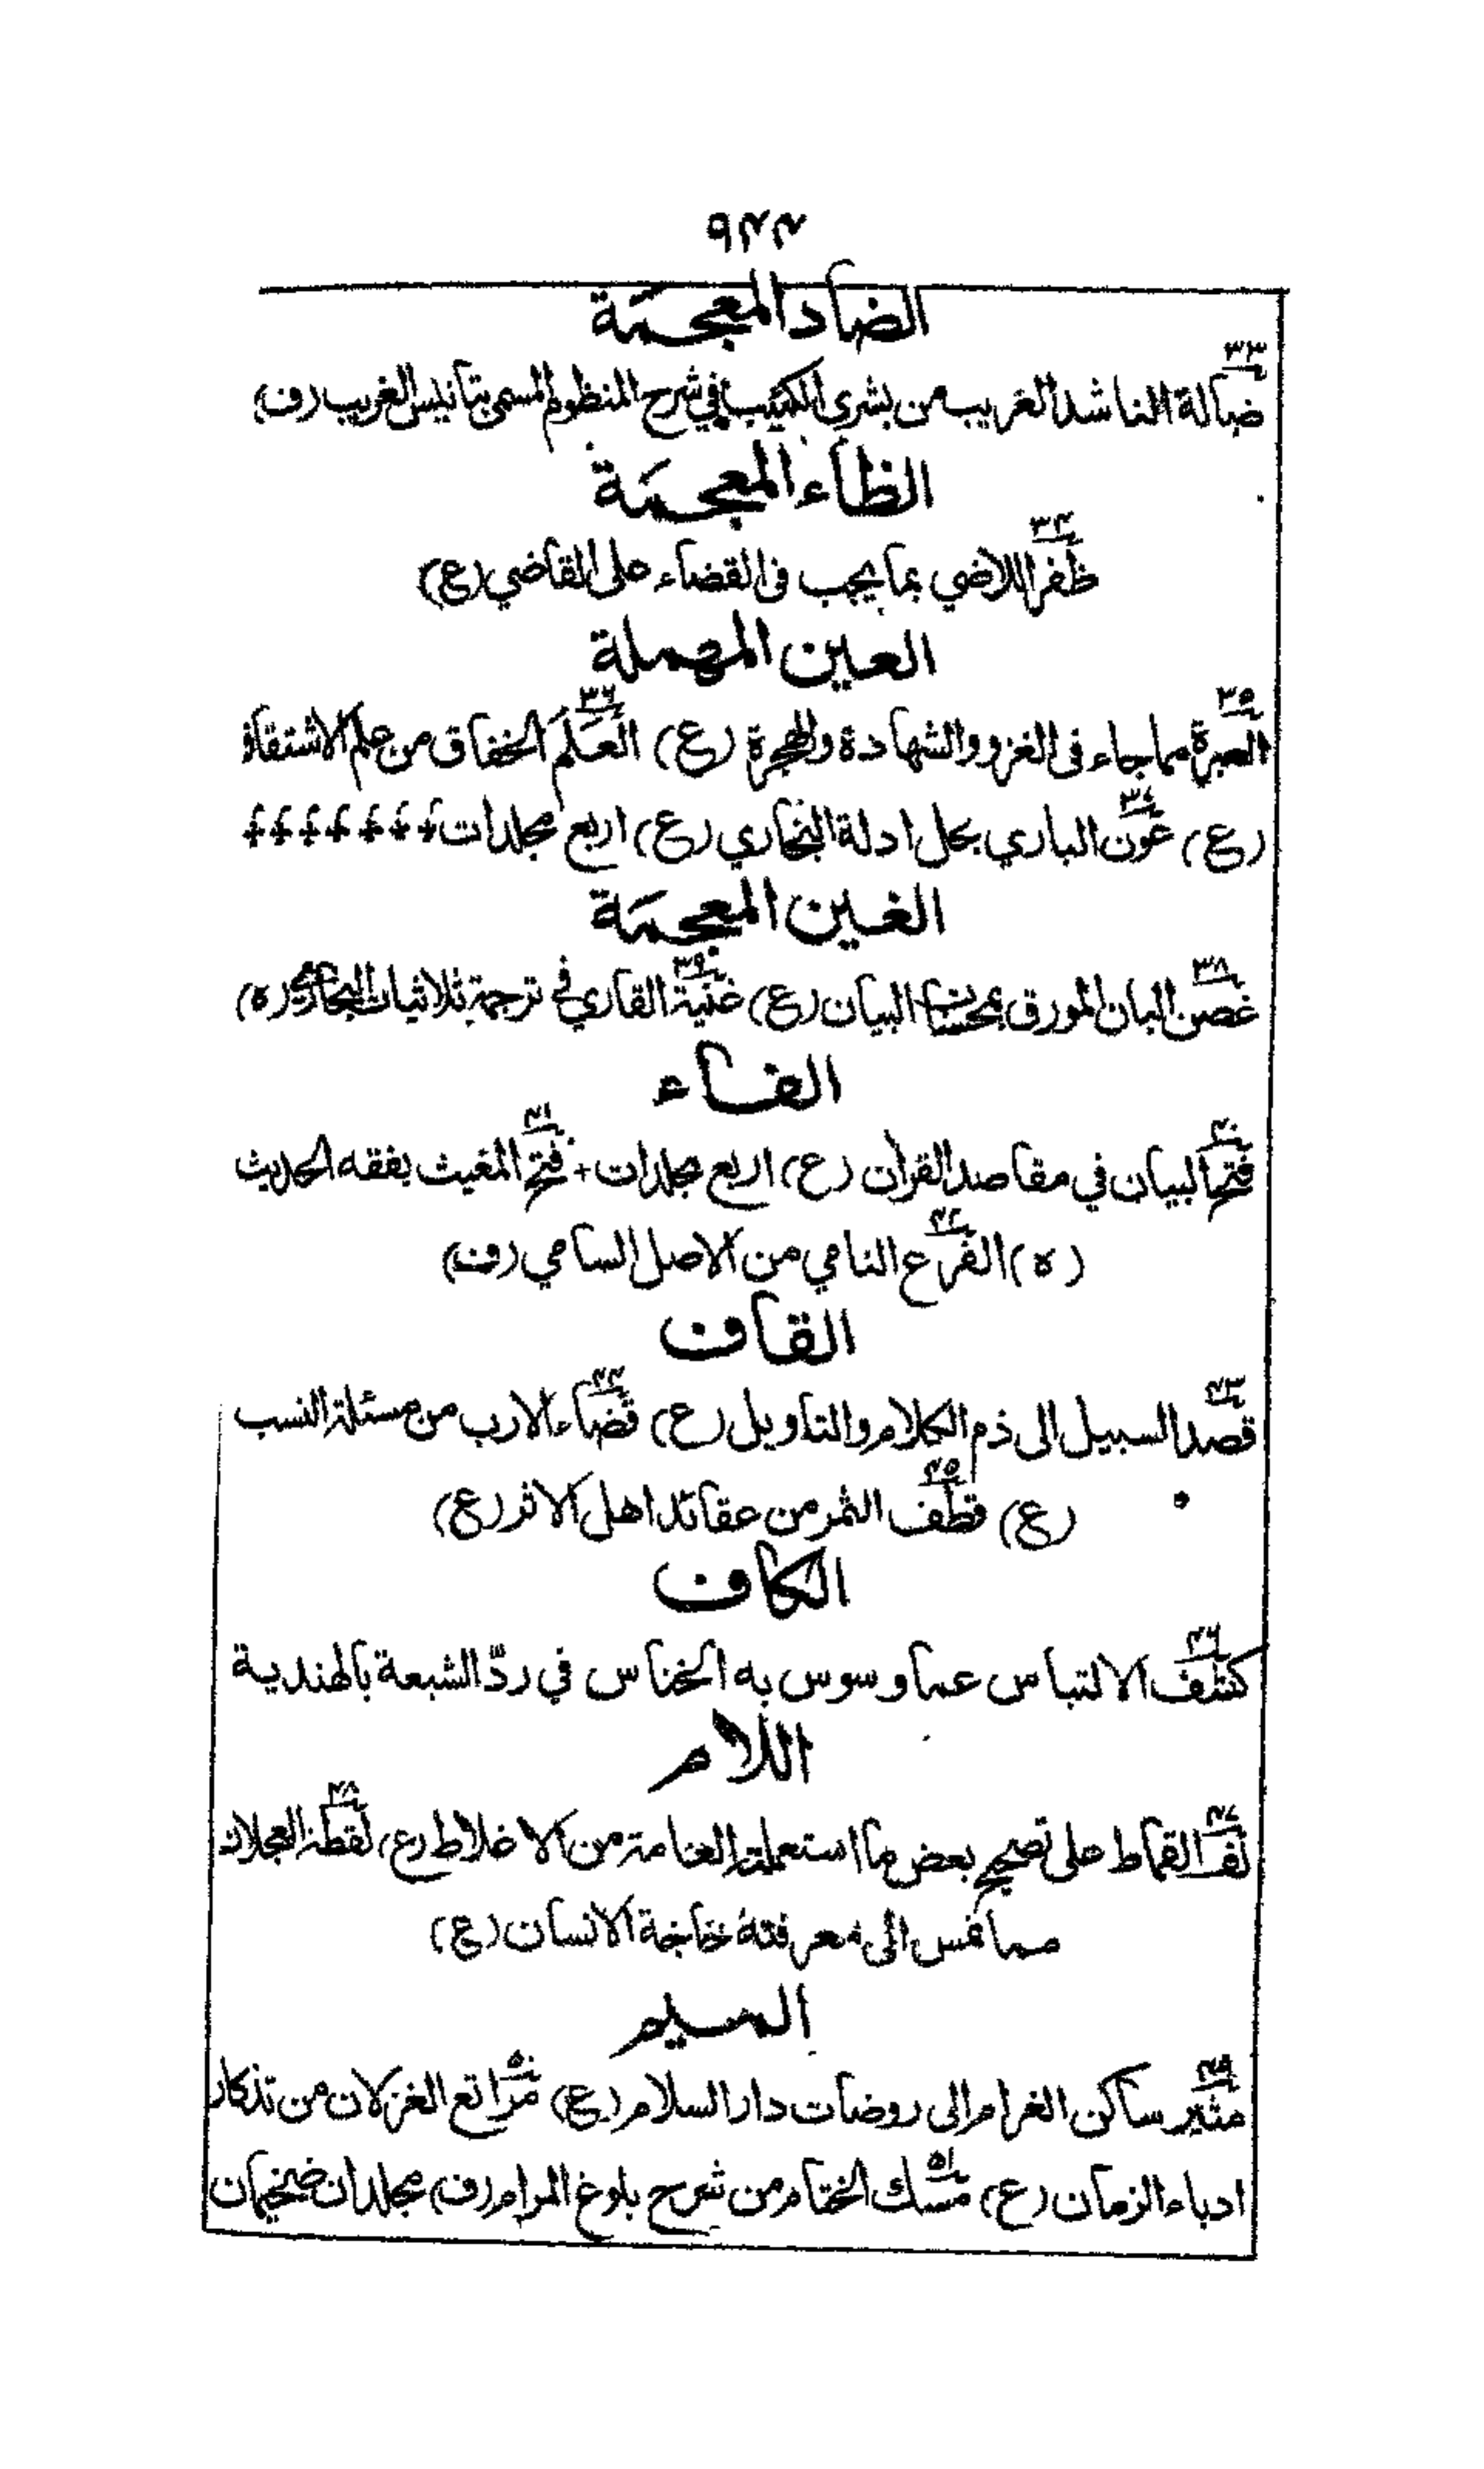 ٩٤٤
الضاد المعجمة
٣٣ ضالة الناشد الغريب من بشرى الكئيب في شرح المنظوم المسمى بتأنيس الغريب (ف)
الظاء المعجمة
٣٤ ظفر اللاضي بما يجب في القضاء على القاضي (ع)
العين المهملة
٣٥ العبرة مما جاء في الغزو والشهادة والهجرة (ع) ٣٦ العَلَم الخفاق من علم الاشتقاق
(ع) ٣٧ عون الباري بحل ادلة البخاري (ع) اربع مجلدات
الغين المعجمة
٣٨ غصن البان المورق بمحسنات البيان (ع) ٣٩ غنية القاري في ترجمة ثلاثيات البخاري (ه)
الفاء
٤٠ فتح البيان في مقاصد القرآن (ع) اربع مجلدات + ٤١ فتح المغيث بفقه الحديث
(ه) ٤٢ الفرع النامي من الاصل السامي (ف)
القاف
٤٣ قصد السبيل الى ذم الكلام والتاويل (ع) ٤٤ قضاء الارب من مسئلة النسب
(ع) ٤٥ قطف الثمر من عقائد اهل الاثر (ع)
الكاف
٤٦ كشف الالتباس عما وسوس به الخناس في ردّ الشيعة بالهندية
اللام
٤٧ لف القماط على تصحيح بعض ما استعملته العامة من الاغلاط (ع) ٤٨ لقطة العجلان
مما تمس الى معرفته حاجة الانسان (ع)
الميم
٤٩ مثير ساكن الغرام الى روضات دار السلام (ع) ٥٠ مراتع الغزلان من تذكار
ادباء الزمان (ع) ٥١ مسك الختام من شرح بلوغ المرام (ف) مجلدان ضخيمان